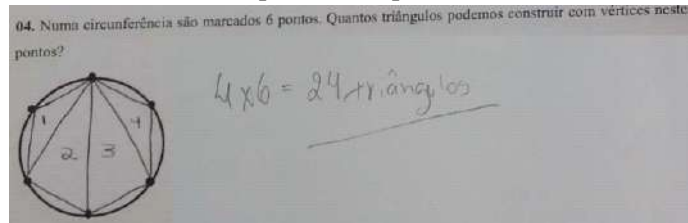 04. Numa circunferência são marcados 6 pontos. Quantos triângulos podemos construir com vértices neste
pontos?
4x6 = 24 triângulos
1
4
2
3